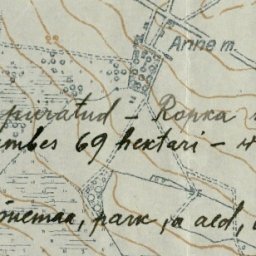 Anne m.
piiratud - Ropka
umbes 69 hektari -
park, ja aed,